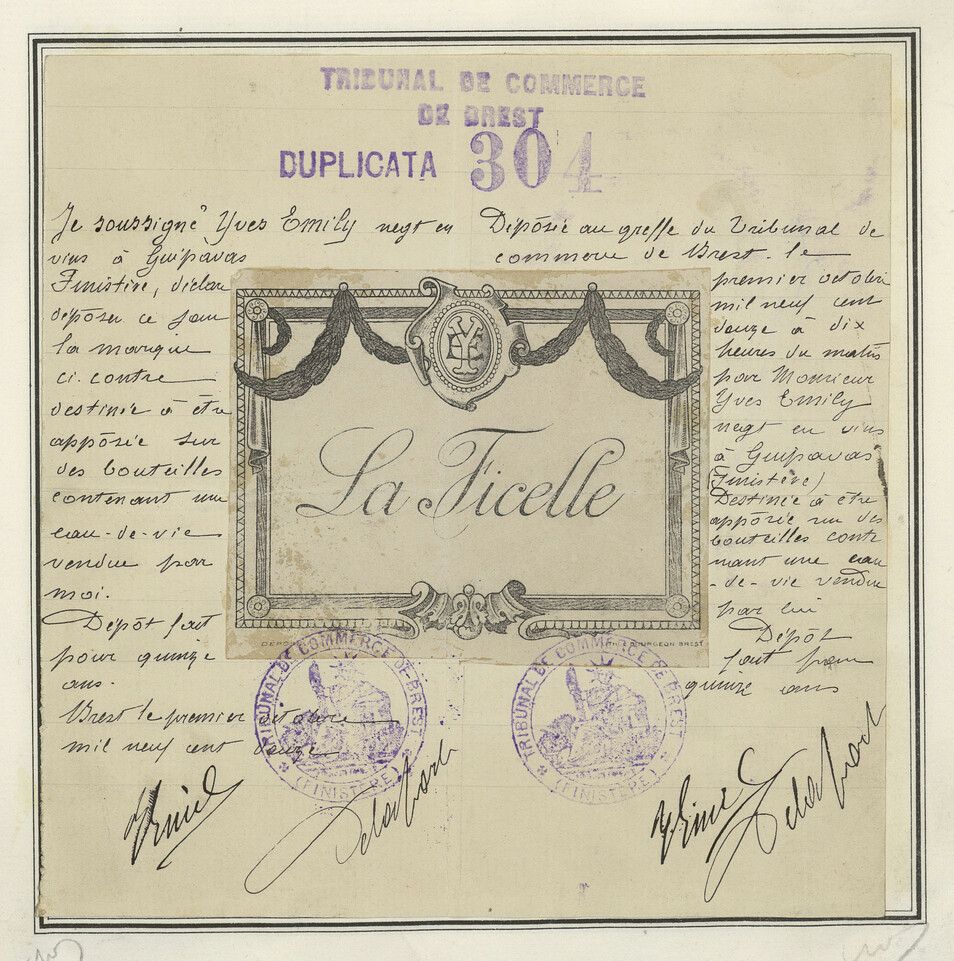 TRIBUNAL DE COMMERCE
DE BREST
DUPLICATA 304
Je soussigné Yves Emily negt en
vins à Guipavas
Finistère, déclare
déposer ce jour
la marque
ci-contre
destinée à être
apposée sur
des bouteilles
contenant une
eau-de-vie
vendue par
moi.
Dépôt fait
pour quinze
ans.
Brest le premier octobre
mil neuf cent douze
Déposée au greffe du Tribunal de
commerce de Brest. le
premier octobre
mil neuf cent
douze à dix
heures du matin
par Monsieur
Yves Emily
negt en vins
à Guipavas
(Finistère)
Destinée à être
apposée sur des
bouteilles conte
nant une eau
-de-vie vendue
par lui
Dépôt
fait pour
quinze ans
YE
La Ficelle
BOURGEON BREST
TRIBUNAL DE COMMERCE DE BREST
(FINISTERE)
TRIBUNAL DE COMMERCE DE BREST
(FINISTERE)